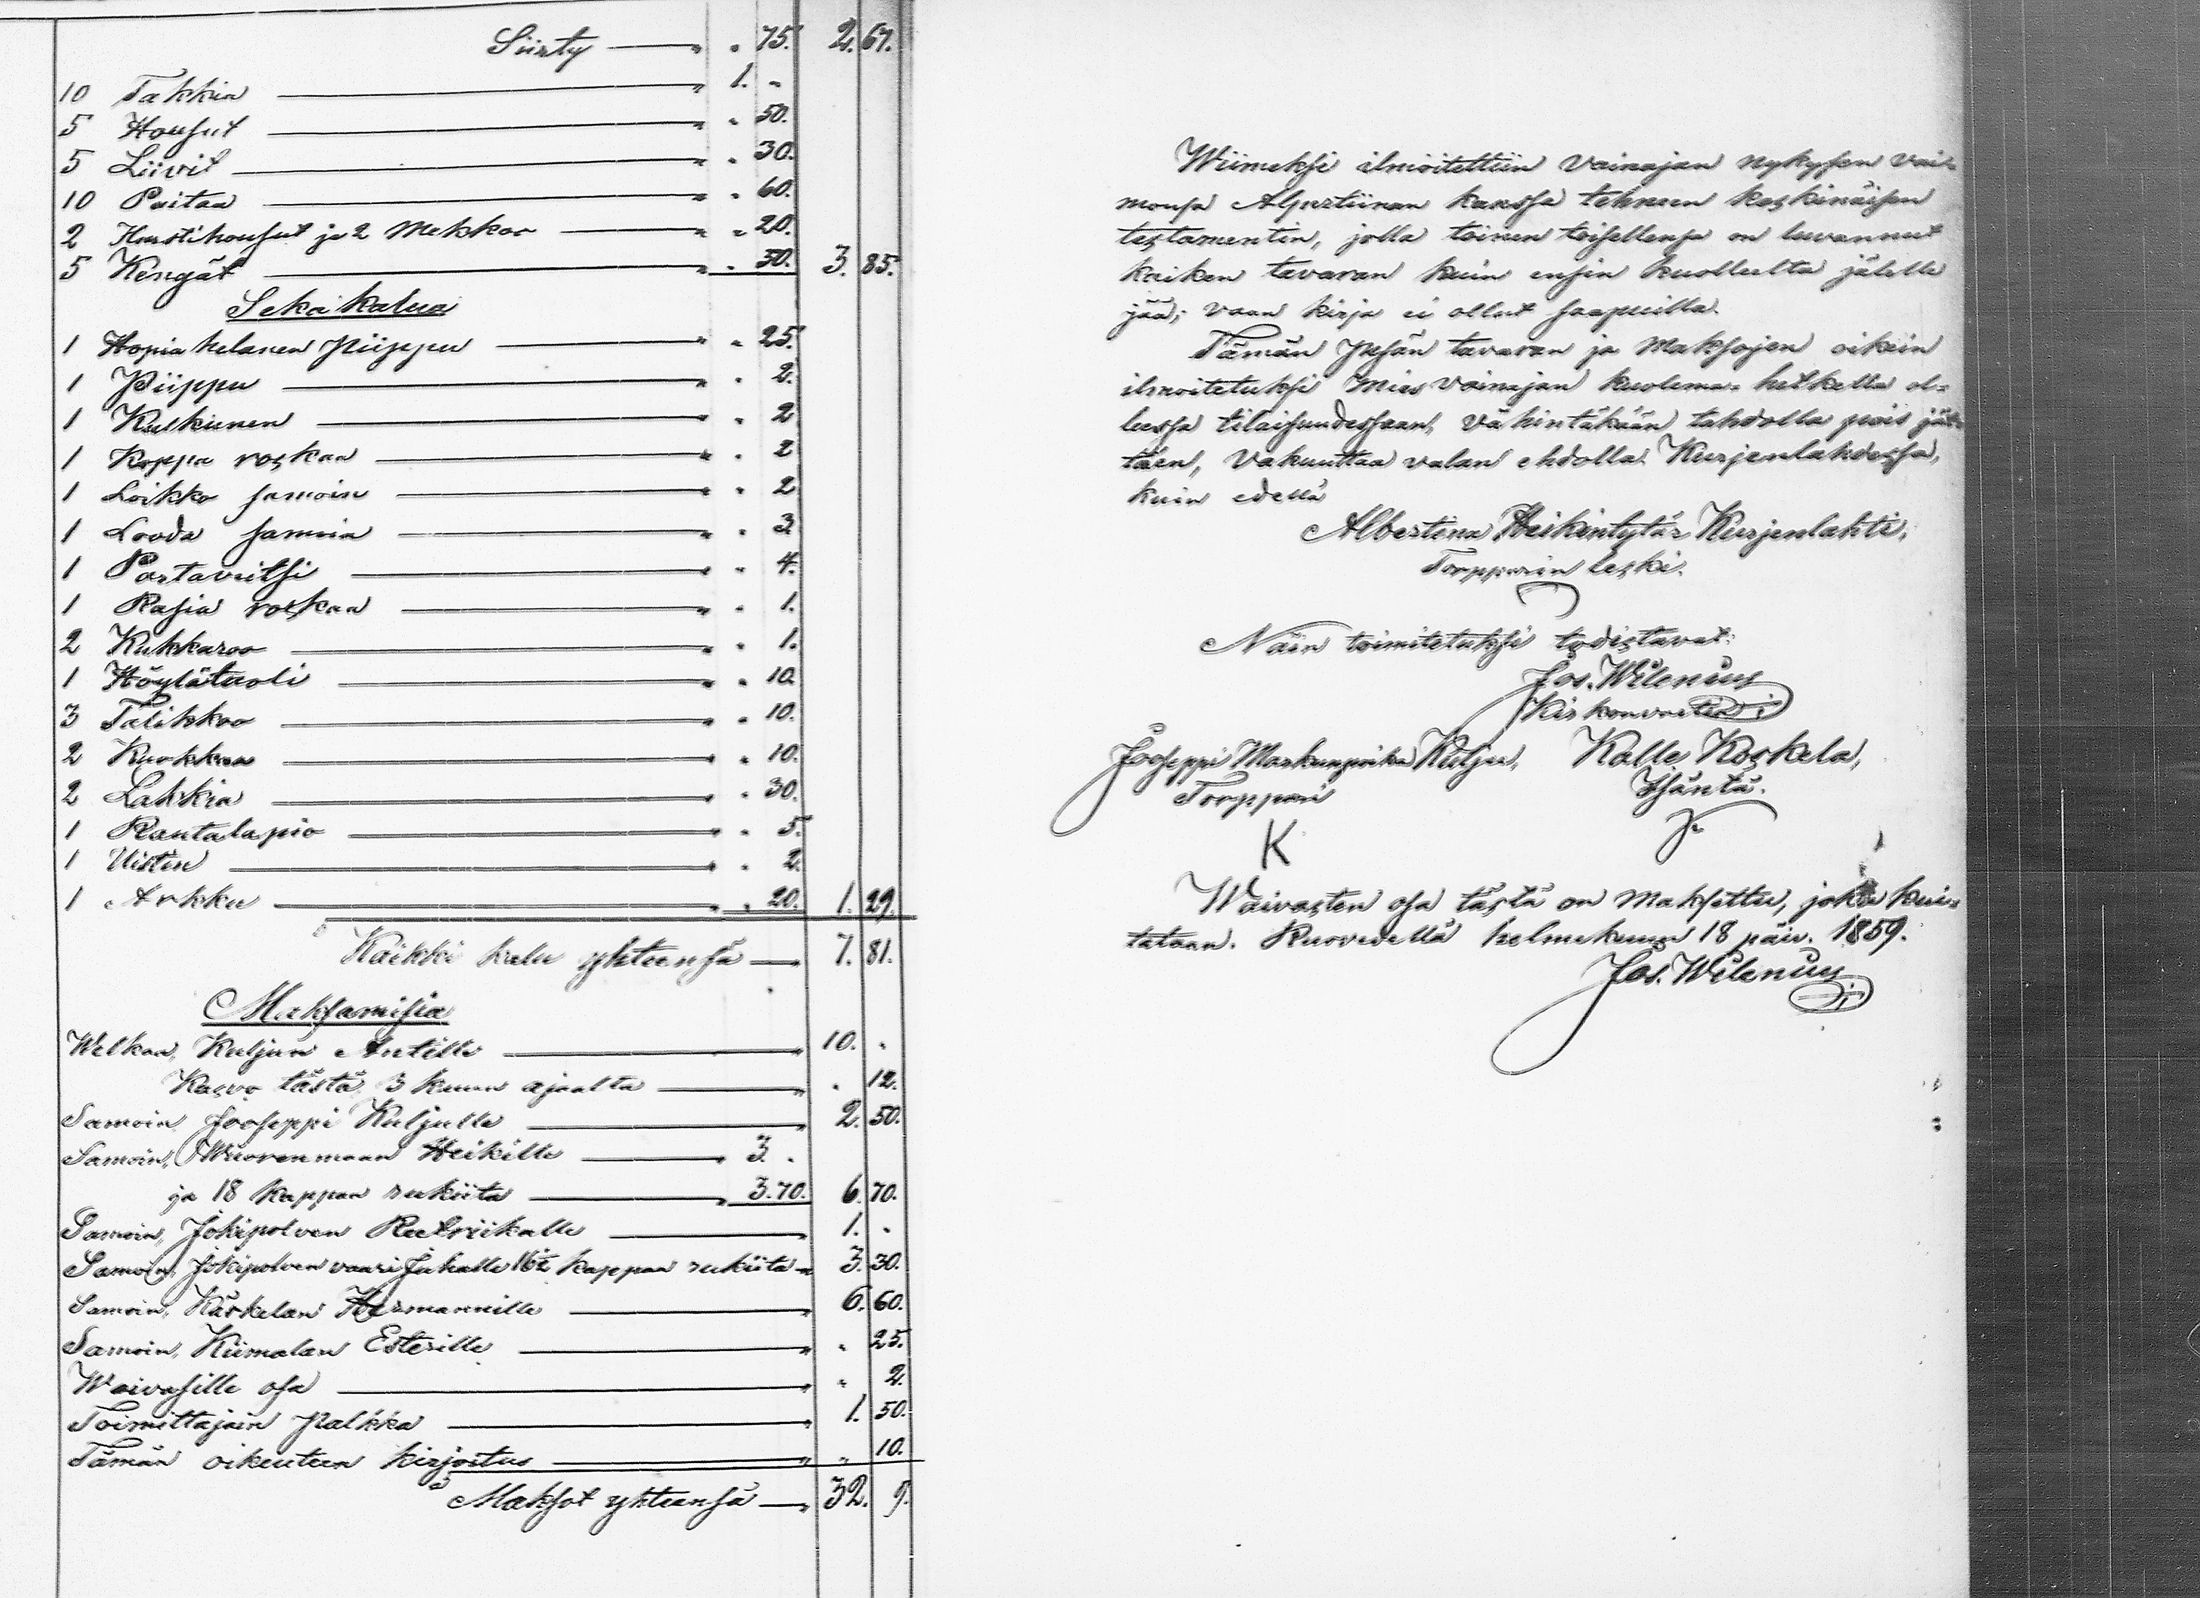 Siirty — " " 75. 2. 67.
10 Takkia — " 1. "
5 Housut — " " 50.
5 Liivit — " " 30.
10 Paitaa — " " 60.
2 Hurstihousut ja 2 Mekkoo — " " 20.
5 Kengät — " " 50. 3. 85.
Seka kalua
1 Hopia helanen Piippu — " " 25.
1 Piippu — " " 2.
1 Kulkunen — " " 2
1 Koppa roskaa — " " 2
1 Loikko samoin — " " 2
1 Looda samoin — " " 3.
1 Partaveitsi — " " 4.
1 Rasia roskaa — " " 1.
2 Kukkaroo — " " 1.
1 Höylätuoli — " " 10.
3 Talikkoo — " " 10.
2 Kuokkaa — " " 10.
2 Lakkia — " " 30.
1 Rautalapio — " " 5.
1 Uistin — " " 2.
1 Arkku — " " 20. 1. 29.
Kaikki kalu yhteensä — " 7. 81.
Maksamisia
Welkaa, Kuljun Antille — " 10. "
Kasvo tästä 3 kuun ajaalta — " " 12.
Samoin Jooseppi Kuljulle — " 2. 50.
Samoin, Wuorenmaan Heikille — " 3. "
ja 18 kappaa rukiita — " 3.70. 6. 70.
Samoin, Jokipolven Reetriikalle — " 1. "
Samoin, Jokipolven vaari Juhalle 16½ kappaa rukiita " 3. 30.
Samoin, Käskelan Hermannille — " 6. 60.
Samoin, Kiimalan Esterille — " " 25.
Waivasille osa — " " 2.
Toimittajain Palkka — " 1. 50.
Tämän oikeuteen kirjoitus — " " 10.
Maksot yhteensä — " 32. 9.
Wiimeksi ilmoitettiin vainajan nykysen vai-
monsa Alpertiinan kanssa tehneen keskinäisen
testamentin, jolla toinen toisellensa on luvannut
kaiken tavaran kuin ensin kuolleelta jälelle
jää; vaan kirja ei ollut saapuilla.
Tämän Pesän tavaran ja Maksojen oikein
ilmoitetuksi Mies vainajan kuolema-hetkella ol-
leessa tilaisuudessaan, vähintäkään tahdolla pois jät-
täen, vakuuttaa valan ehdolla Kurjenlahdessa,
kuin edellä
Albertina Heikintytär Kurjenlahti,
Torpparin leski.
Näin toimitetuksi todistavat:
Jos. Wilenius
Kirkonvartia
Jooseppi Markunpoika Kulju, Kalle Koskela,
Torppari Isäntä.
K
Waivasten osa tästä on Maksettu, joka kui-
tataan. Ruovedellä helmekuun 18 päiv. 1859.
Jos. Wilenius